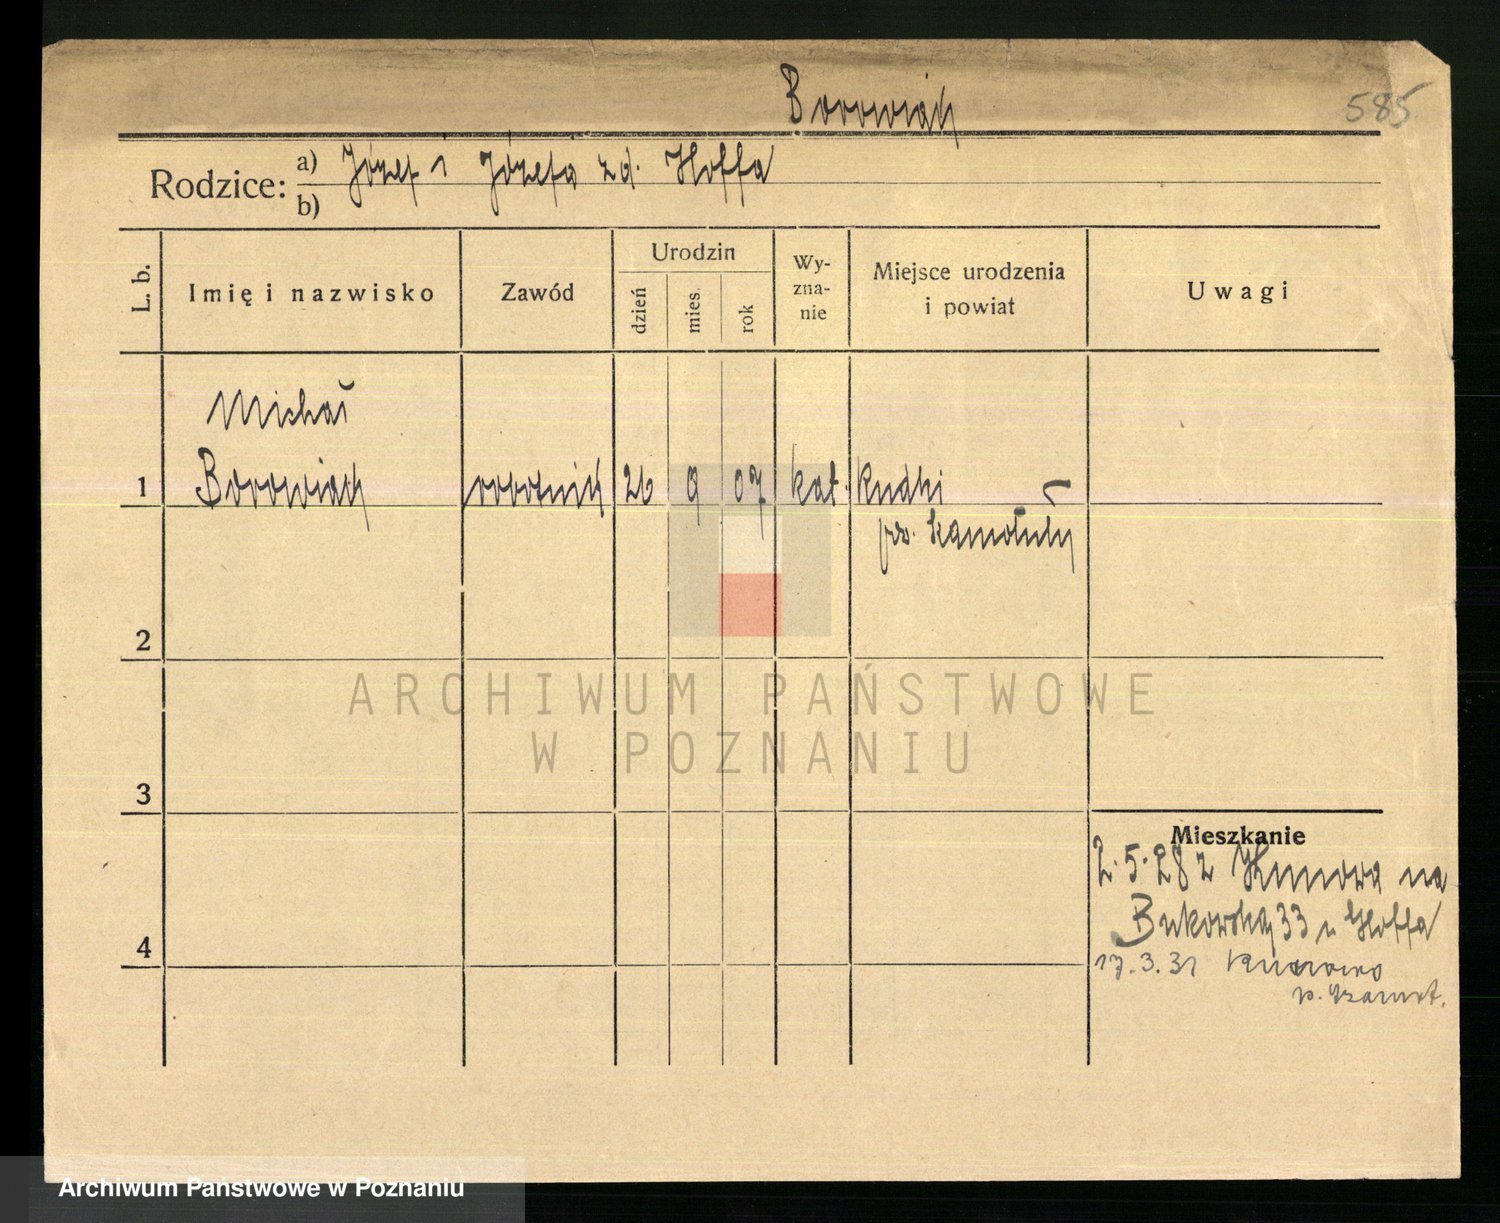 Borowiak
585
Rodzice: a) Józef i Józefa zd. Hoffa
b)
L. b.
Imię i nazwisko
Zawód
Urodzin
dzień
mies.
rok
Wy-
zna-
nie
Miejsce urodzenia
i powiat
Uwagi
Michał
1 Borowiak robotnik 26 9 07 kat. Rudki
pow. Szamotuły
2
3
4
ARCHIWUM PAŃSTWOWE
W POZNANIU
Mieszkanie
2.5.28 z na
Bukowską 33 u Hoffa
17.3.31
p. Szamot.
Archiwum Państwowe w Poznaniu